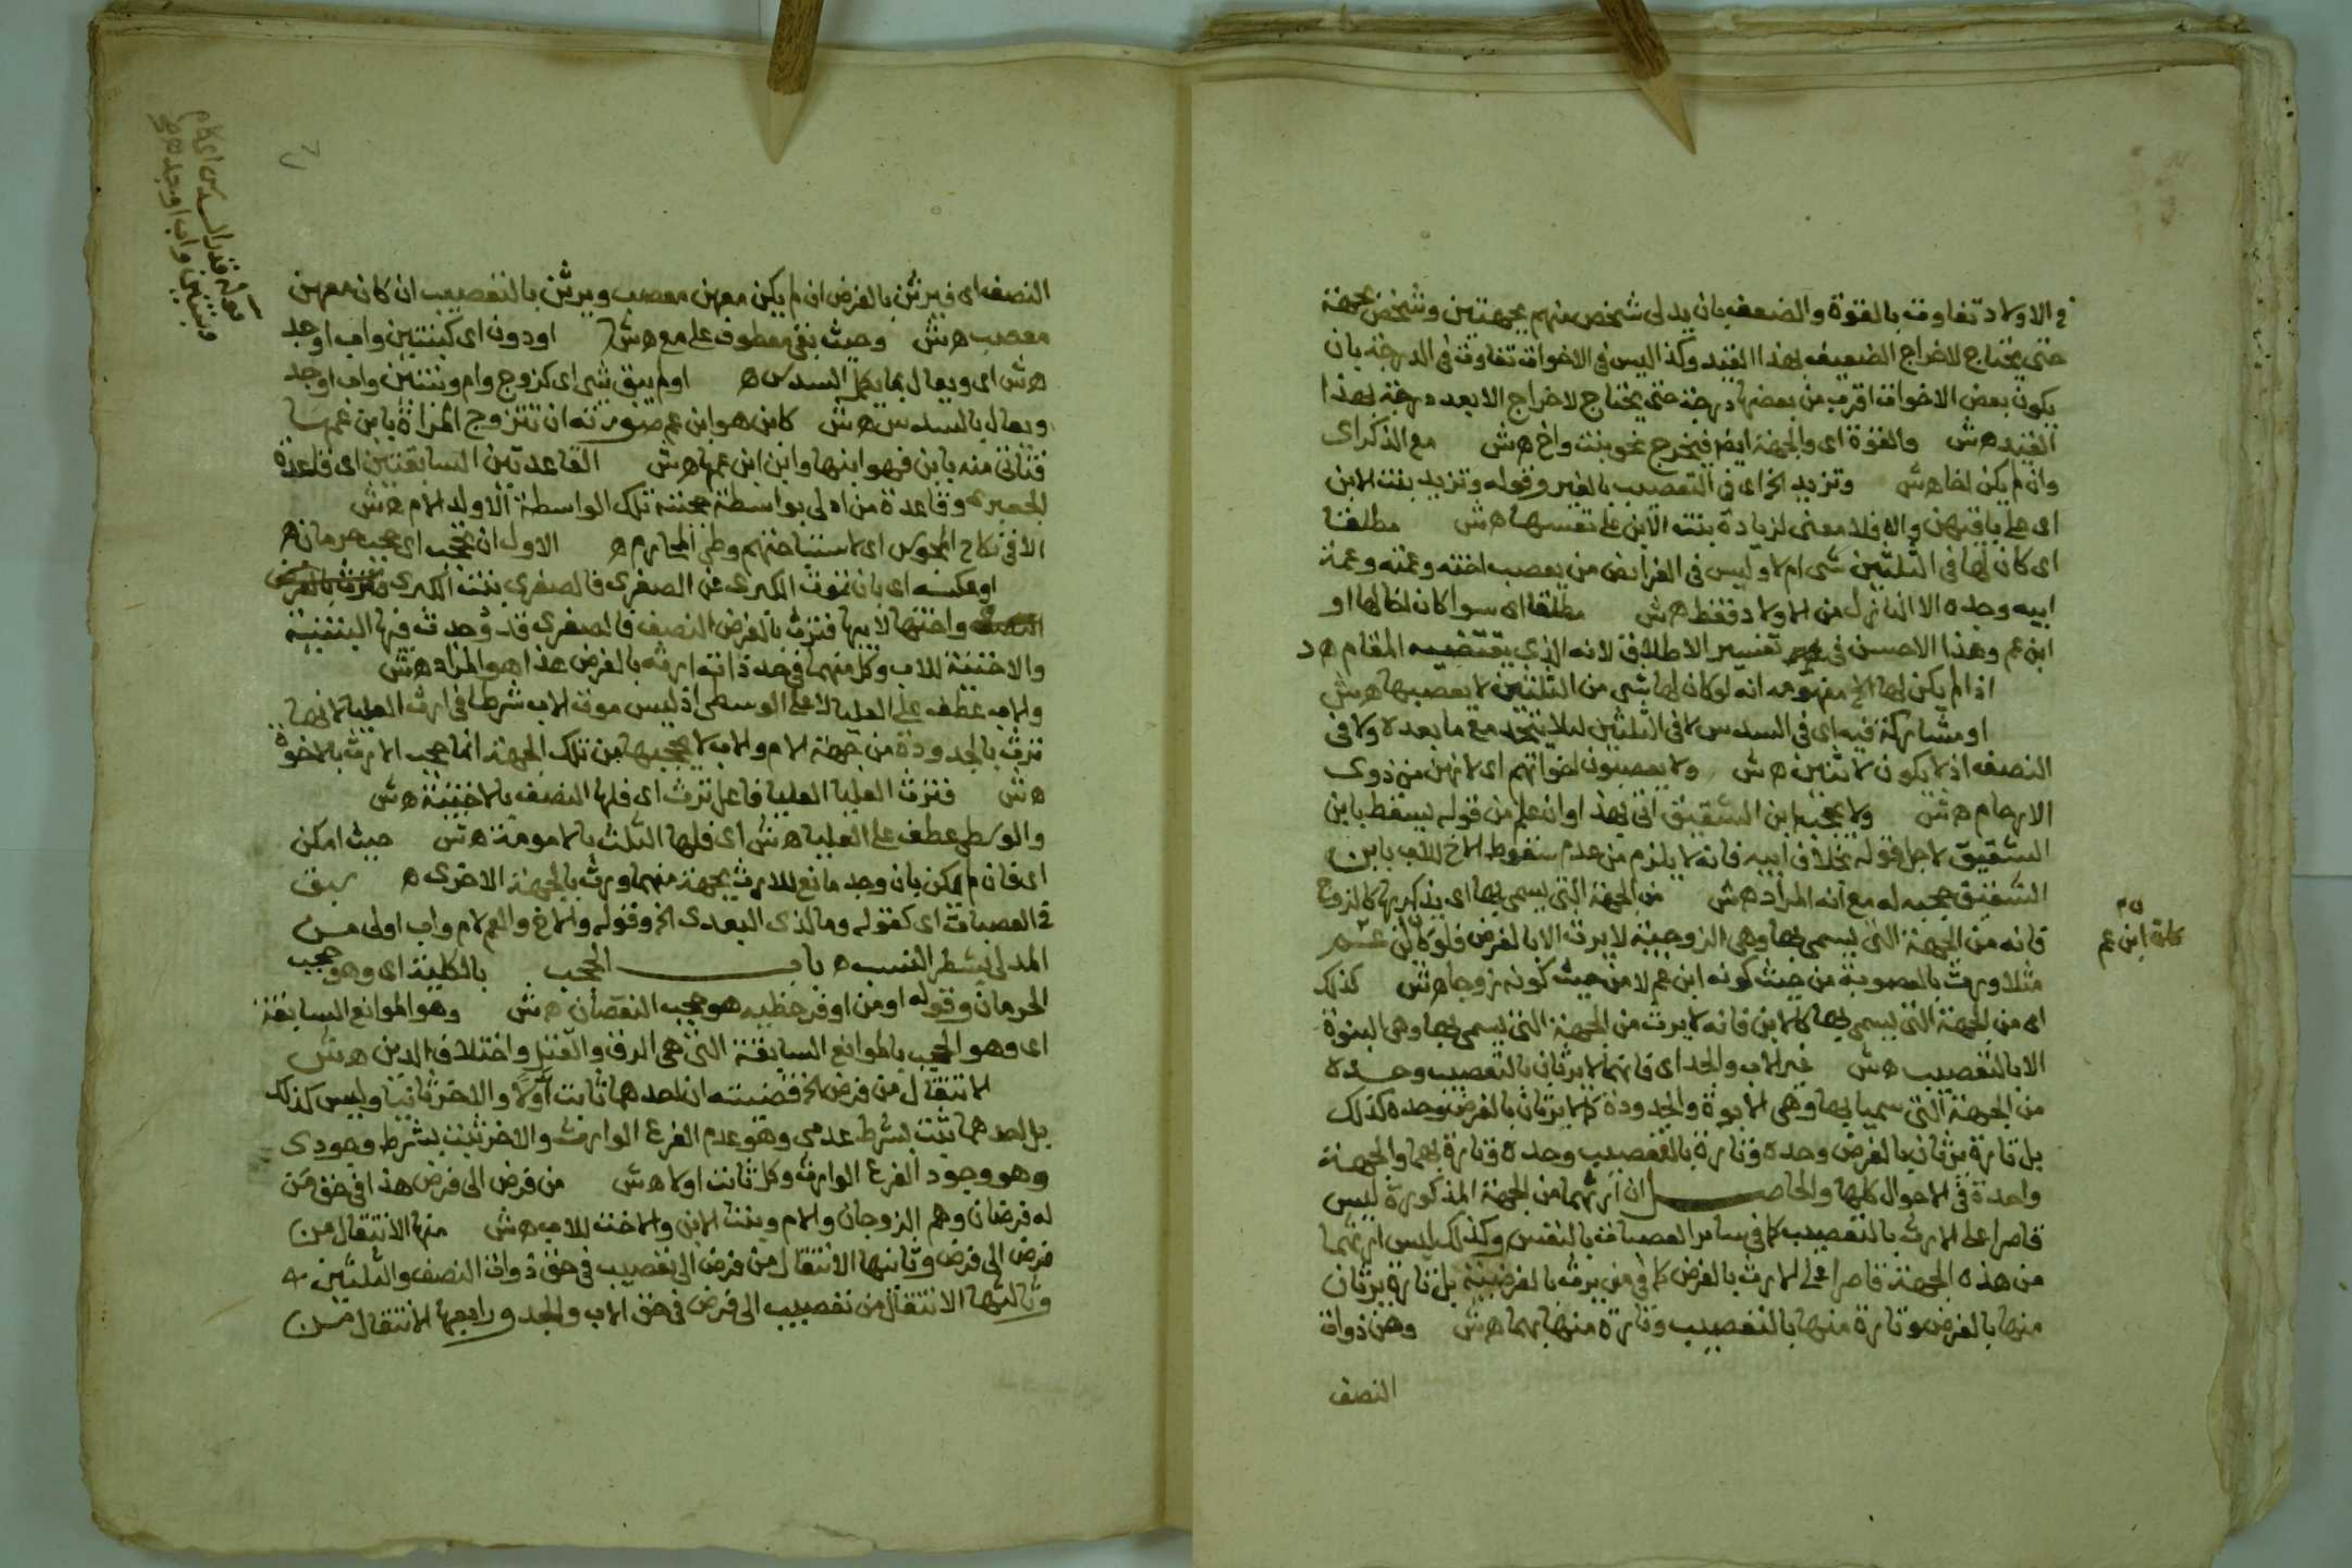 في الاولاد تفاوت بالقوة والضعف بان يدلى شخص منهم بجهتين وشخص بجهة
حتى يحتاج لاخراج الضعيف بهذا القيد وكذا ليس في الاخوات تفاوت في الدرجة بان
يكون بعض الاخوات اقرب من بعضها درجة حتى يحتاج لاخراج الابعد درجة بهذا
القيد هش والقوة اى والجهة ايضا فيخرج نحو بنت واخ هش مع الذكر اى
وان لم يكن اخا هش وتزيد الخ اى في التعصيب بالغير وقوله وتزيد بنت الابن
اى على باقيهن والا فلا معنى لزيادة بنت الابن على نفسها هش مطلقا
اى كان لها في الثلثين شى ام لا وليس في الفرائض من يعصب اخته وعمته وعمة
ابيه وجده الا النازل من الاولاد فقط هش مطلقا اى سوا كان اخا لها او
ابن عم وهذا الاحسن في تفسير الاطلاق لانه الذى يقتضيه المقام هد
اذا لم يكن لها الخ مفهومه انه لو كان لها شى من الثلثين لا يعصبها هش
او مشاركة فيه اى في السدس لا في الثلثين ليلا يتحد مع ما بعده ولا في
النصف اذ لا يكون لاثنين هش ولا يعصبون اخواتهم اى لانهن من ذوى
الارحام هش ولا يحجبه ابن الشقيق اتى بهذا وان علم من قوله يسقط بابن
الشقيق لاجل قوله بخلاف ابيه فانه لا يلزم من عدم سقوط الاخ للاب بابن
الشقيق حجبه له مع انه المراد هش من الجهة التى يسمى بها اى يذكر بها كالزوج
فانه من الجهة التى يسمى بها وهى الزوجية لا يرث الا بالفرض فلو كان ابن عم
مثلا ورث بالعصوبة من حيث كونه ابن عم لا من حيث كونه زوجا هش كذلك
اى من الجهة التى يسمى بها كالابن فانه لا يرث من الجهة التى يسمى بها وهى البنوة
الا بالتعصيب هش غير الاب والجد اى فانهما لا يرثان بالتعصيب وحده
من الجهة التى سميا بها وهى الابوة والجدودة كما لا يرثان بالفرض وحده كذلك
بل تارة يرثان بالفرض وحده وتارة بالتعصيب وحده وتارة بهما والجهة
واحدة في الاحوال كلها والحاصل ان ارثهما من الجهة المذكورة ليس
قاصرا على الارث بالتعصيب كما في ساير العصبات بالنفس وكذلك ليس ارثهما
من هذه الجهة قاصرا على الارث بالفرض كما في من يرث بالفرضية بل تارة يرثان
منها بالفرض وتارة منها بالتعصيب وتارة منها بهما هش وهن ذوات
النصف
كان ابن عم
النصف اى فيرثن بالفرض ان لم يكن معهن معصب ويرثن بالتعصيب ان كان معهن
معصب هش وحيث بقى معطوف على مع هش او دون اى كبنتين واب او جد
هش اى ويعال بما يكمل السدس ه او لم يبق شى اى كزوج وام وبنتين واب او جد
ويعال بالسدس هش كابن هو ابن عم صورته ان تتزوج المراة بابن عمها
فتأتى منه بابن فهو ابنها وابن ابن عمها هش القاعدتين السابقتين اى قاعدة
الجعبرى وقاعدة من ادلى بواسطة حجبته تلك الواسطة الا ولد الام هش
الا في نكاح المجوس اى لاستباحتهم وطى المحارم ه الاول ان يحجب اى حجب حرمان ه
او عكسه اى بان تموت الكبرى عن الصغرى فالصغرى بنت الكبرى
واختها لابيها فترث بالفرض النصف فالصغرى قد وجدت فيها البنتية
والاختية للاب وكل منهما في حد ذاته ارثه بالفرض هذا هو المراد هش
والاب عطف على العليا لا على الوسطى اذ ليس موت الاب شرطا في ارث العليا لانها
ترث بالجدودة من جهة الام والاب لا يحجبها من تلك الجهة انما حجب الارث بالاخوة
هش فترث العليا العليا فاعل ترث اى فلها النصف بالاختية هش
والوسطى عطف على العليا هش اى فلها الثلث بالامومة هش حيث امكن
اى فان لم يمكن بان وجد مانع للارث بجهة منهما ورث بالجهة الاخرى ه سبق
في العصبات اى كقوله وما لذى البعدى الخ وقوله والاخ والعم لام واب اولى من
المدلى بشطر النسب ه باب الحجب بالكلية اى وهو حجب
الحرمان وقوله او من اوفر حظيه هو حجب النقصان هش وهو الموانع السابقة
اى وهو الحجب بالموانع السابقة التى هى الرق والقتل واختلاف الدين هش
الانتقال من فرض الخ قضيته ان احدهما ثابت اولا والاخر ثانيا وليس كذلك
بل احدهما يثبت بشرط عدمى وهو عدم الفرع الوارث والاخر يثبت بشرط وجودى
وهو وجود الفرع الوارث وكل ثابت اولا هش من فرض الى فرض هذا في حق من
له فرضان وهم الزوجان والام وبنت الابن والاخت للاب هش منها الانتقال من
فرض الى فرض وثانيها الانتقال من فرض الى تعصيب في حق ذوات النصف والثلثين
وثالثها الانتقال من تعصيب الى فرض في حق الاب والجد ورابعها الانتقال من
قدر السدس اى كام
وبنتين واب او جد